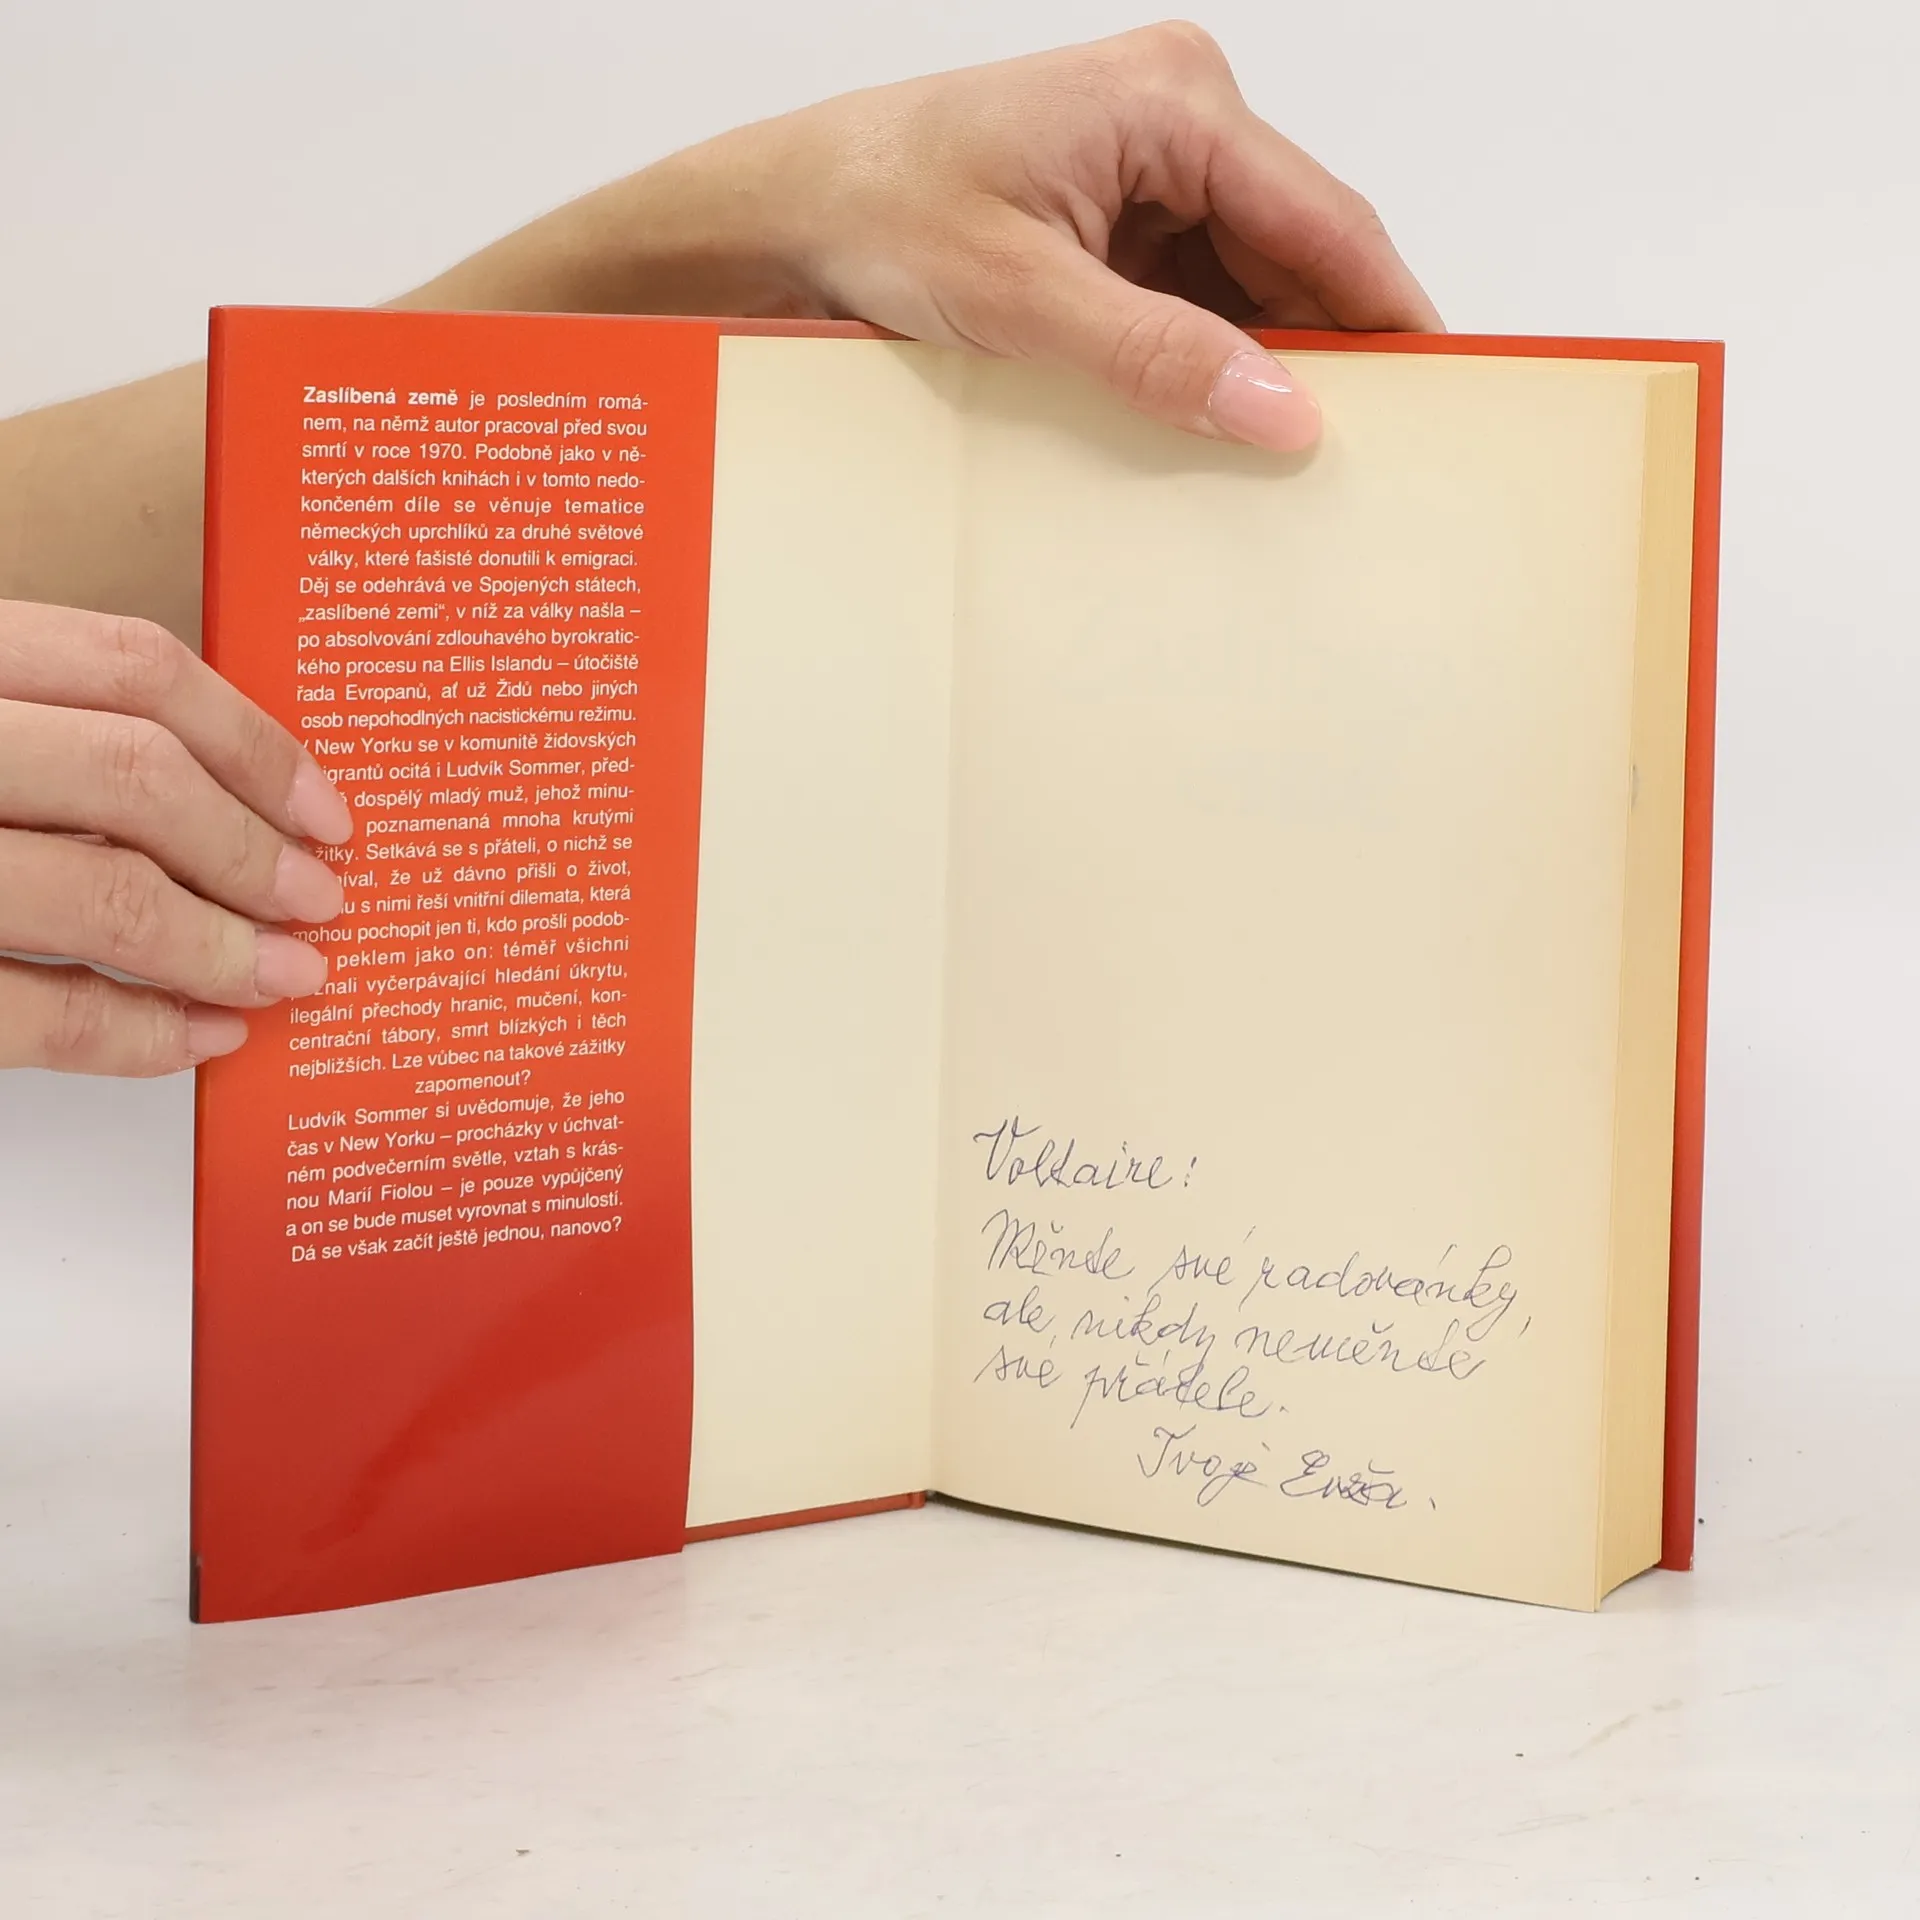 Zaslíbená země je posledním romá-
nem, na němž autor pracoval před svou
smrtí v roce 1970. Podobně jako v ně-
kterých dalších knihách i v tomto nedo-
končeném díle se věnuje tematice
německých uprchlíků za druhé světové
války, které fašisté donutili k emigraci.
Děj se odehrává ve Spojených státech,
„zaslíbené zemi“, v níž za války našla –
po absolvování zdlouhavého byrokratic-
kého procesu na Ellis Islandu – útočiště
řada Evropanů, ať už Židů nebo jiných
osob nepohodlných nacistickému režimu.
New Yorku se v komunitě židovských
igrantů ocitá i Ludvík Sommer, před-
dospělý mladý muž, jehož minu-
poznamenaná mnoha krutými
žitky. Setkává se s přáteli, o nichž se
íval, že už dávno přišli o život,
u s nimi řeší vnitřní dilemata, která
mohou pochopit jen ti, kdo prošli podob-
peklem jako on: téměř všichni
znali vyčerpávající hledání úkrytu,
ilegální přechody hranic, mučení, kon-
centrační tábory, smrt blízkých i těch
nejbližších. Lze vůbec na takové zážitky
zapomenout?
Ludvík Sommer si uvědomuje, že jeho
čas v New Yorku – procházky v úchvat-
ném podvečerním světle, vztah s krás-
nou Marií Fiolou – je pouze vypůjčený
a on se bude muset vyrovnat s minulostí.
Dá se však začít ještě jednou, nanovo?
Voltaire:
Měnte své radovánky,
ale nikdy neměnte
své přátele.
Tvoje